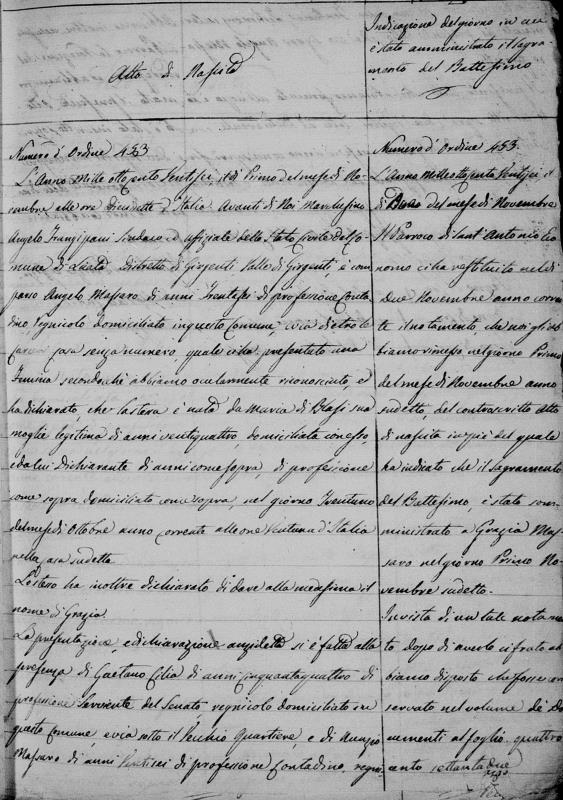 Atto di Nascita
Numero d'Ordine 453
L'Anno Mille ottocento Ventisei, il dì Primo del mese di No-
vembre alle ore Diecisette d'Italia. Avanti di Noi Marchesino
Angelo Frangipani Sindaco ed uffiziale dello Stato Civile del Co-
mune di Distretto di Girgenti Valle di Girgenti, è com-
parso Angelo Massaro di anni Trentasei di professione Conta-
dino regnicolo domiciliato in questo Comune, via dietro le
Carceri casa senza numero, quale ci ha presentato una
Femina secondochè abbiamo ocularmente riconosciuto, e
ha dichiarato, che la stessa è nata da Maria di Biasi sua
moglie legitima di anni ventiquattro, domiciliata con esso,
e da lui Dichiarante di anni come sopra, di professione
come sopra domiciliato come sopra, nel giorno Trentuno
del mese di Ottobre anno corrente alle ore Ventuna d'Italia
nella casa sudetta.
Lo stesso ha inoltre dichiarato di dare alla medesima il
nome di Grazia.
La presentazione, e dichiarazione anzidetta si è fatta alla
presenza di Gaetano Cilia di anni cinquantaquattro di
professione Serviente del Senato regnicolo domiciliato in
questo Comune, e via sotto il Vecchio Quartiere, e di Nunzio
Massaro di anni Ventisei di professione Contadino, regni-
Indicazione del giorno in cui
è stato amministrato il Sagra-
mento del Battesimo
Numero d'Ordine 453.
L'Anno Milleottocento Ventisei il
dì del mese di Novembre
Il Parroco di Sant'Antonio Eco-
nomo ci ha restituito nel dì
Due Novembre anno corren-
te il notamento, che noi gli ab-
biamo rimesso nel giorno Primo
del mese di Novembre anno
sudetto, del controscritto Atto
di nascita in piè del quale
ha indicato che il Sagramento
del Battesimo, è stato som-
ministrato a Grazia Mas-
saro nel giorno Primo No-
vembre sudetto.
In vista di un tale notamen-
to dopo di averlo cifrato ab-
biamo disposto che fosse con-
servato nel volume de' do-
cumenti al foglio quattro
cento settantadue